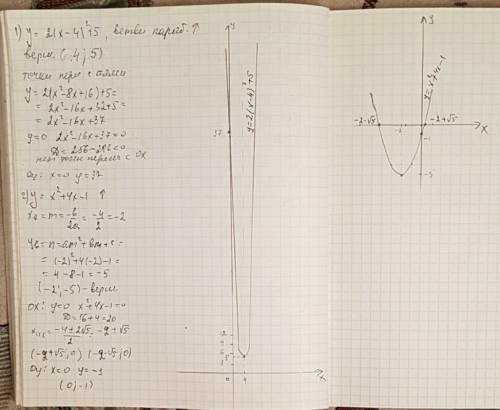 1) y = 2(x-4)²+5, ветви параб. ↑
верш. (4; 5)
точки перес. с осями
y = 2(x²-8x+16)+5=
= 2x²-16x+32+5=
= 2x²-16x+37
y=0 2x²-16x+37=0
D = 256-296<0
нет точек пересеч с OX
Oy: x=0 y=37
2) y = x²+4x-1 ↑
xв = m = -b/2a = -4/2 = -2
yв = n = am²+bm+c=
= (-2)²+4(-2)-1=
= 4-8-1=-5
(-2; -5) - верш
OX: y=0 x²+4x-1=0
D=16+4=20
x₁,₂ = -4±2√5/2 = -2±√5
(-2+√5; 0) (-2-√5; 0)
Oy: x=0 y=-1
(0; -1)
y
37
y=2(x-4)²+5
5
1
0
4
x
y
y=x²+4x-1
-2-√5
-2+√5
x
-2
-1
-5